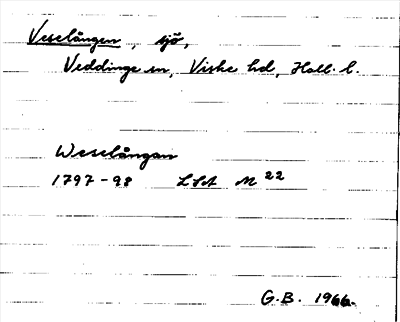 Veselången, sjö,
Veddinge sn, Viske hd, Hall. l.
Weselångan
1797-98 LSA M 22
G.B. 1966.